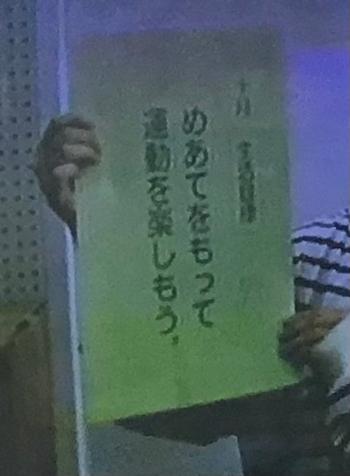 十月 生活目標
めあてをもって
運動を楽しもう。